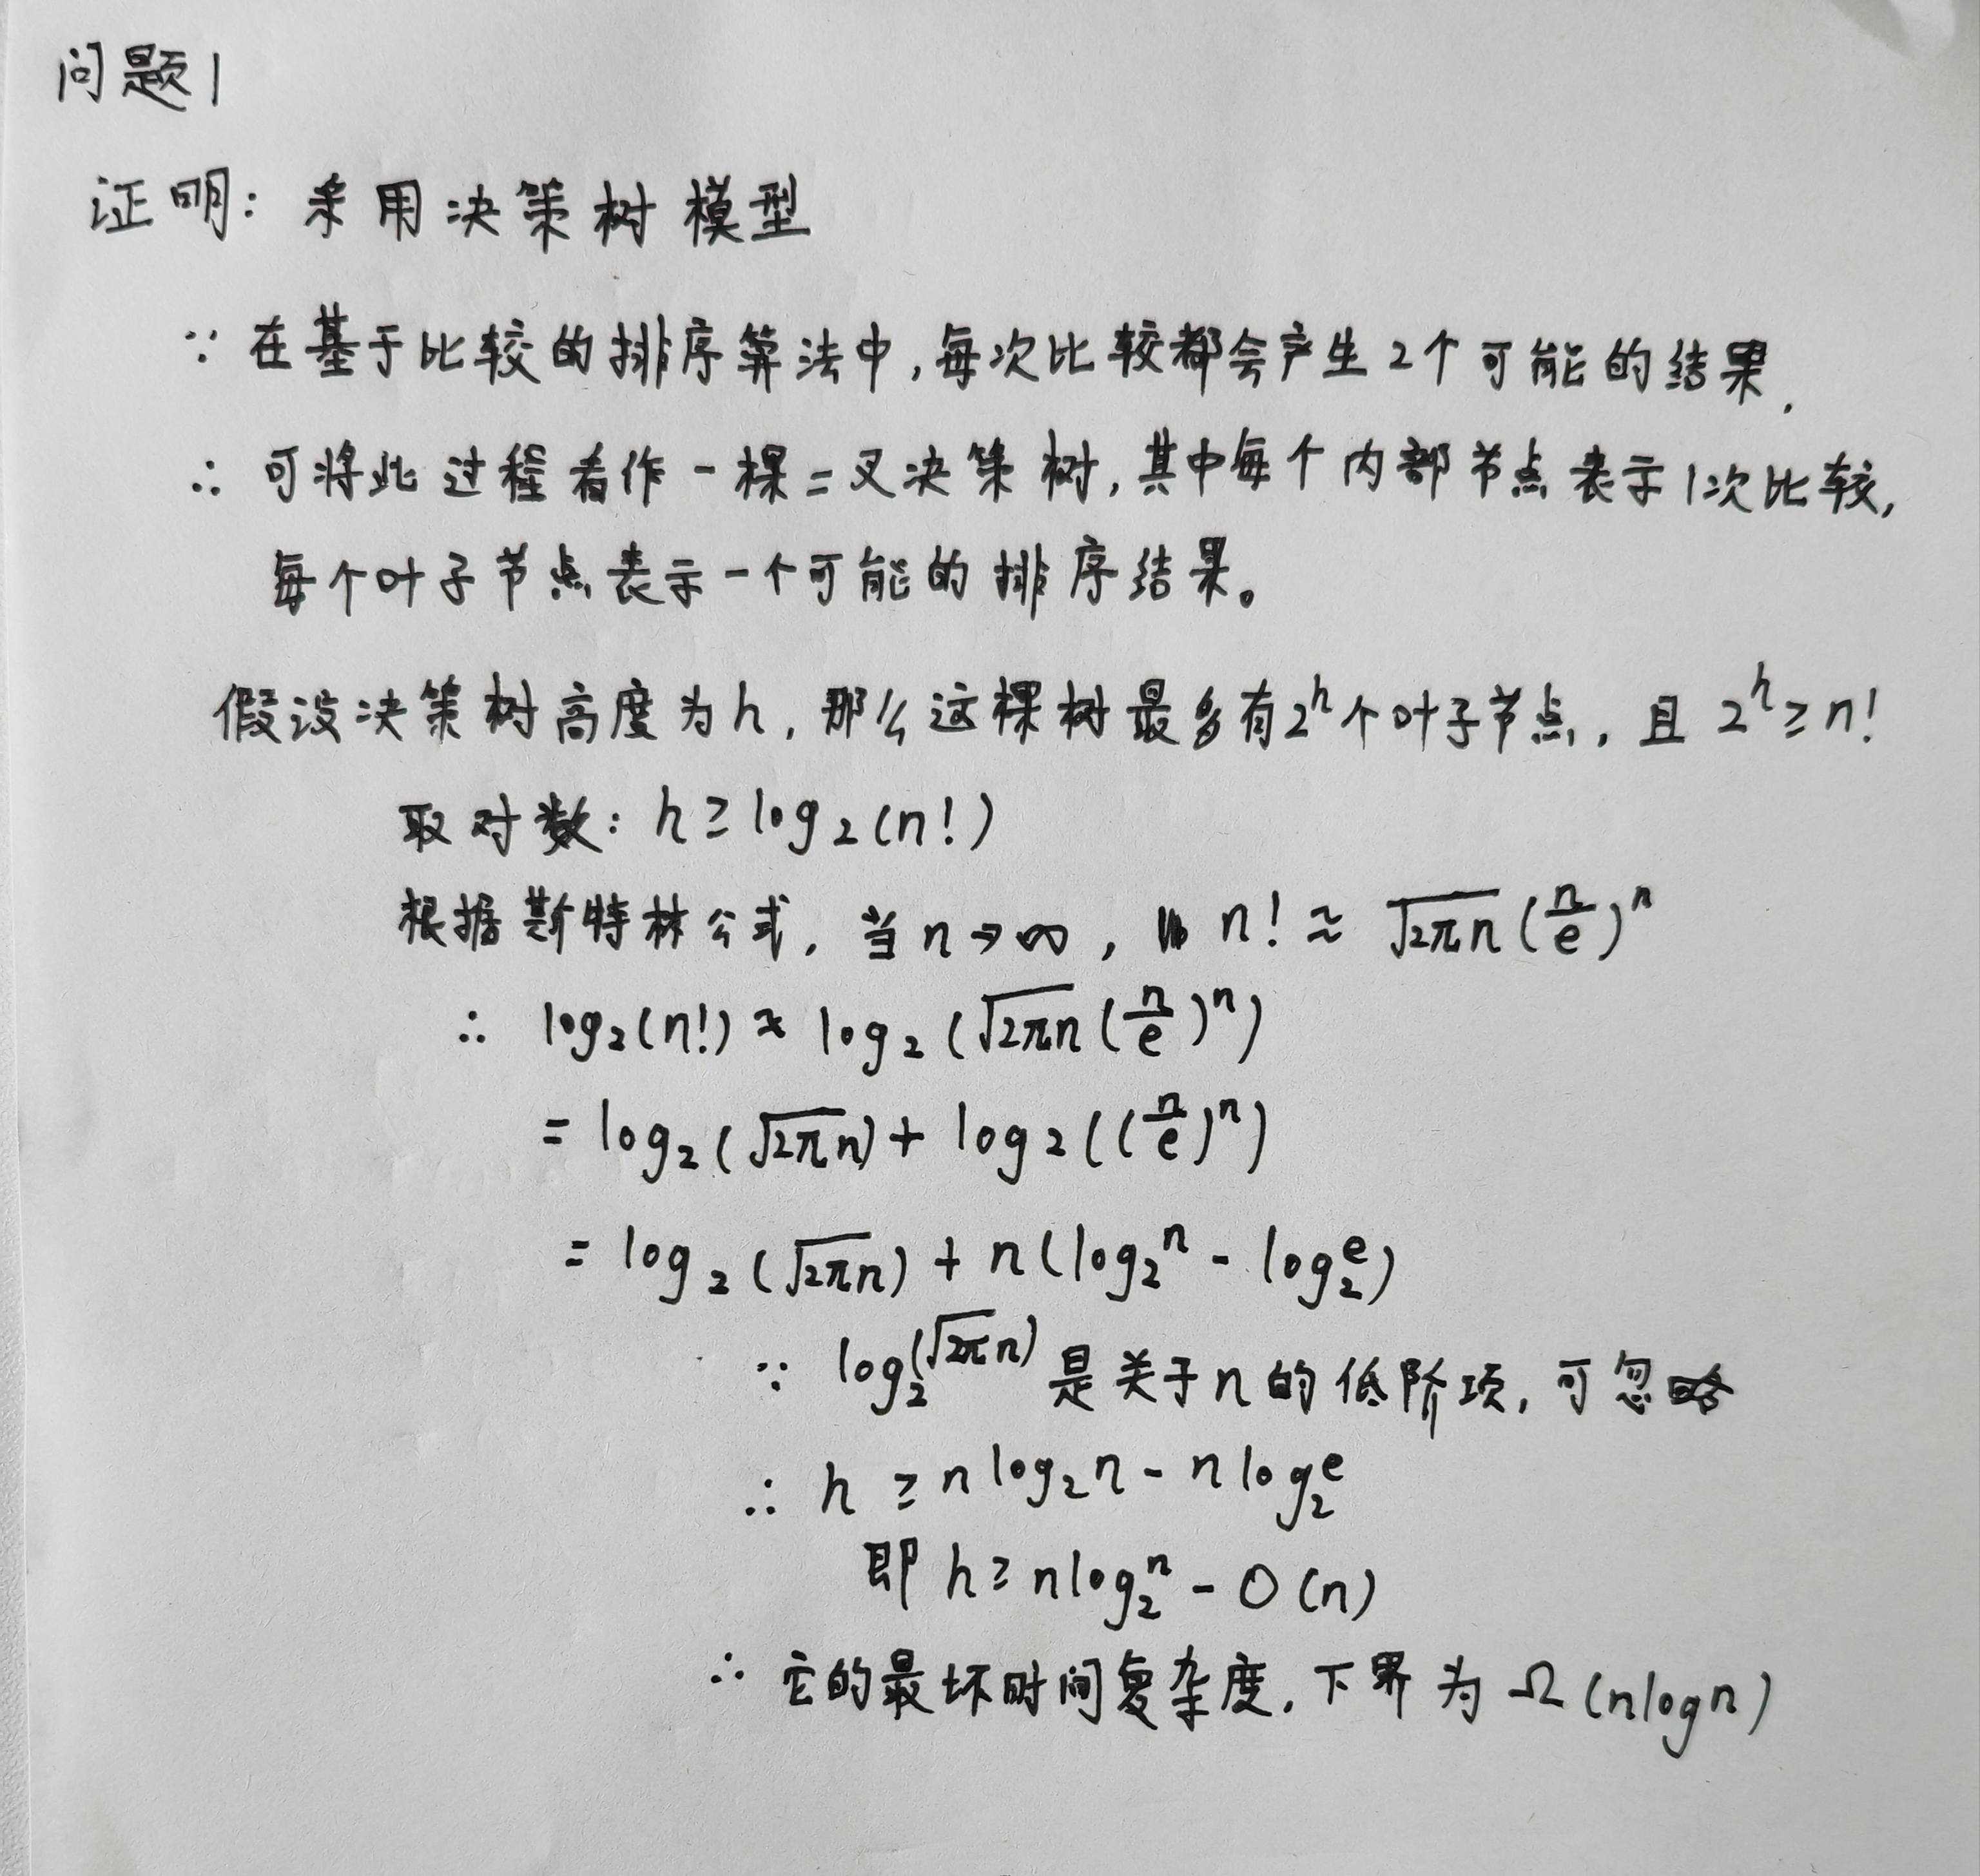 问题1
证明: 采用决策树模型
∵ 在基于比较的排序算法中,每次比较都会产生2个可能的结果,
∴ 可将此过程看作一棵二叉决策树,其中每个内部节点表示1次比较,
每个叶子节点表示一个可能的排序结果。
假设决策树高度为h,那么这棵树最多有2^h个叶子节点,且 2^h ≥ n!
取对数: h ≥ log₂(n!)
根据斯特林公式,当n→∞, n! ≈ √2πn (n/e)^n
∴ log₂(n!) ≈ log₂(√2πn (n/e)^n)
= log₂(√2πn) + log₂((n/e)^n)
= log₂(√2πn) + n(log₂n - log₂e)
∵ log₂(√2πn) 是关于n的低阶项,可忽略
∴ h ≥ nlog₂n - nlog₂e
即 h ≥ nlog₂n - O(n)
∴ 它的最坏时间复杂度,下界为 Ω(nlogn)